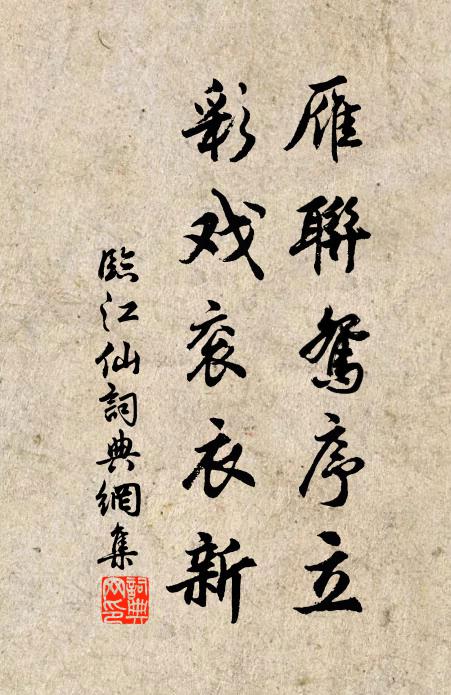 雁聯鴛序立
彩戏衮衣新
臨江仙詞典網集
詞典网印